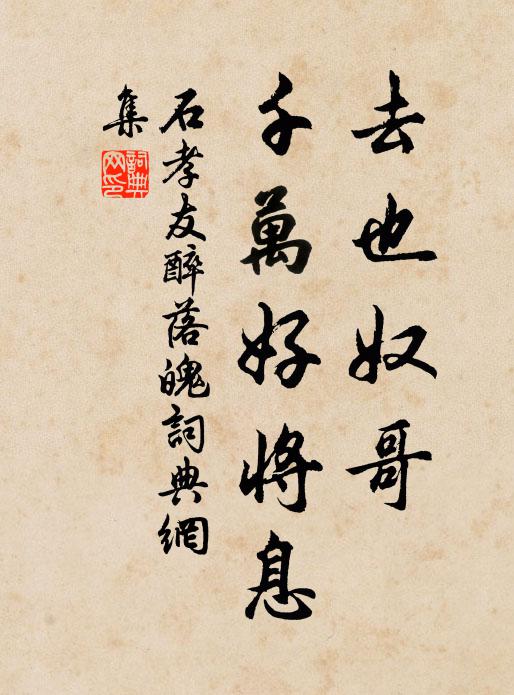 去也奴哥
千萬好將息
石孝友醉落魄詞典網
集
詞典網印